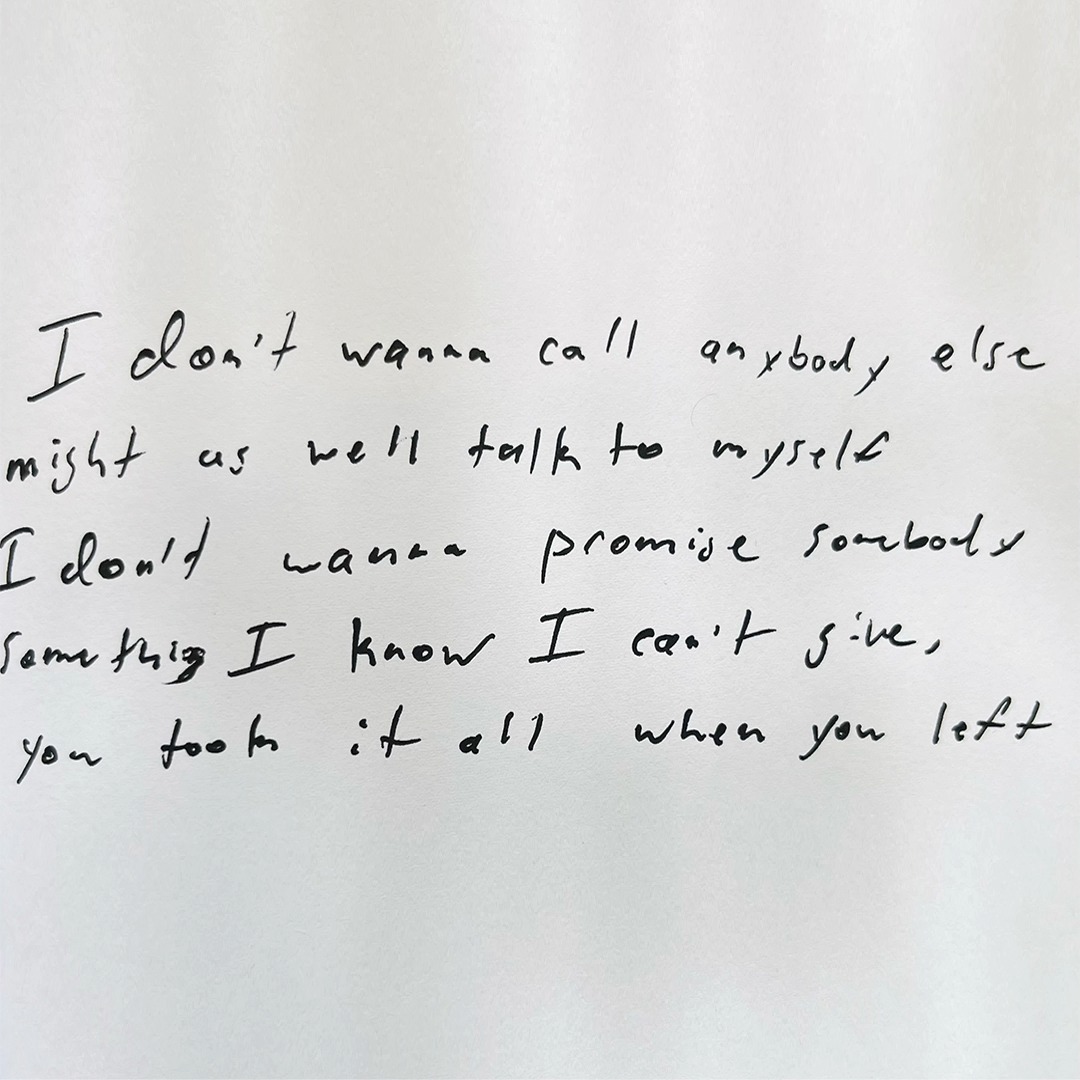 I don't wanna call anybody else
might as well talk to myself
I don't wanna promise somebody
something I know I can't give,
you took it all when you left